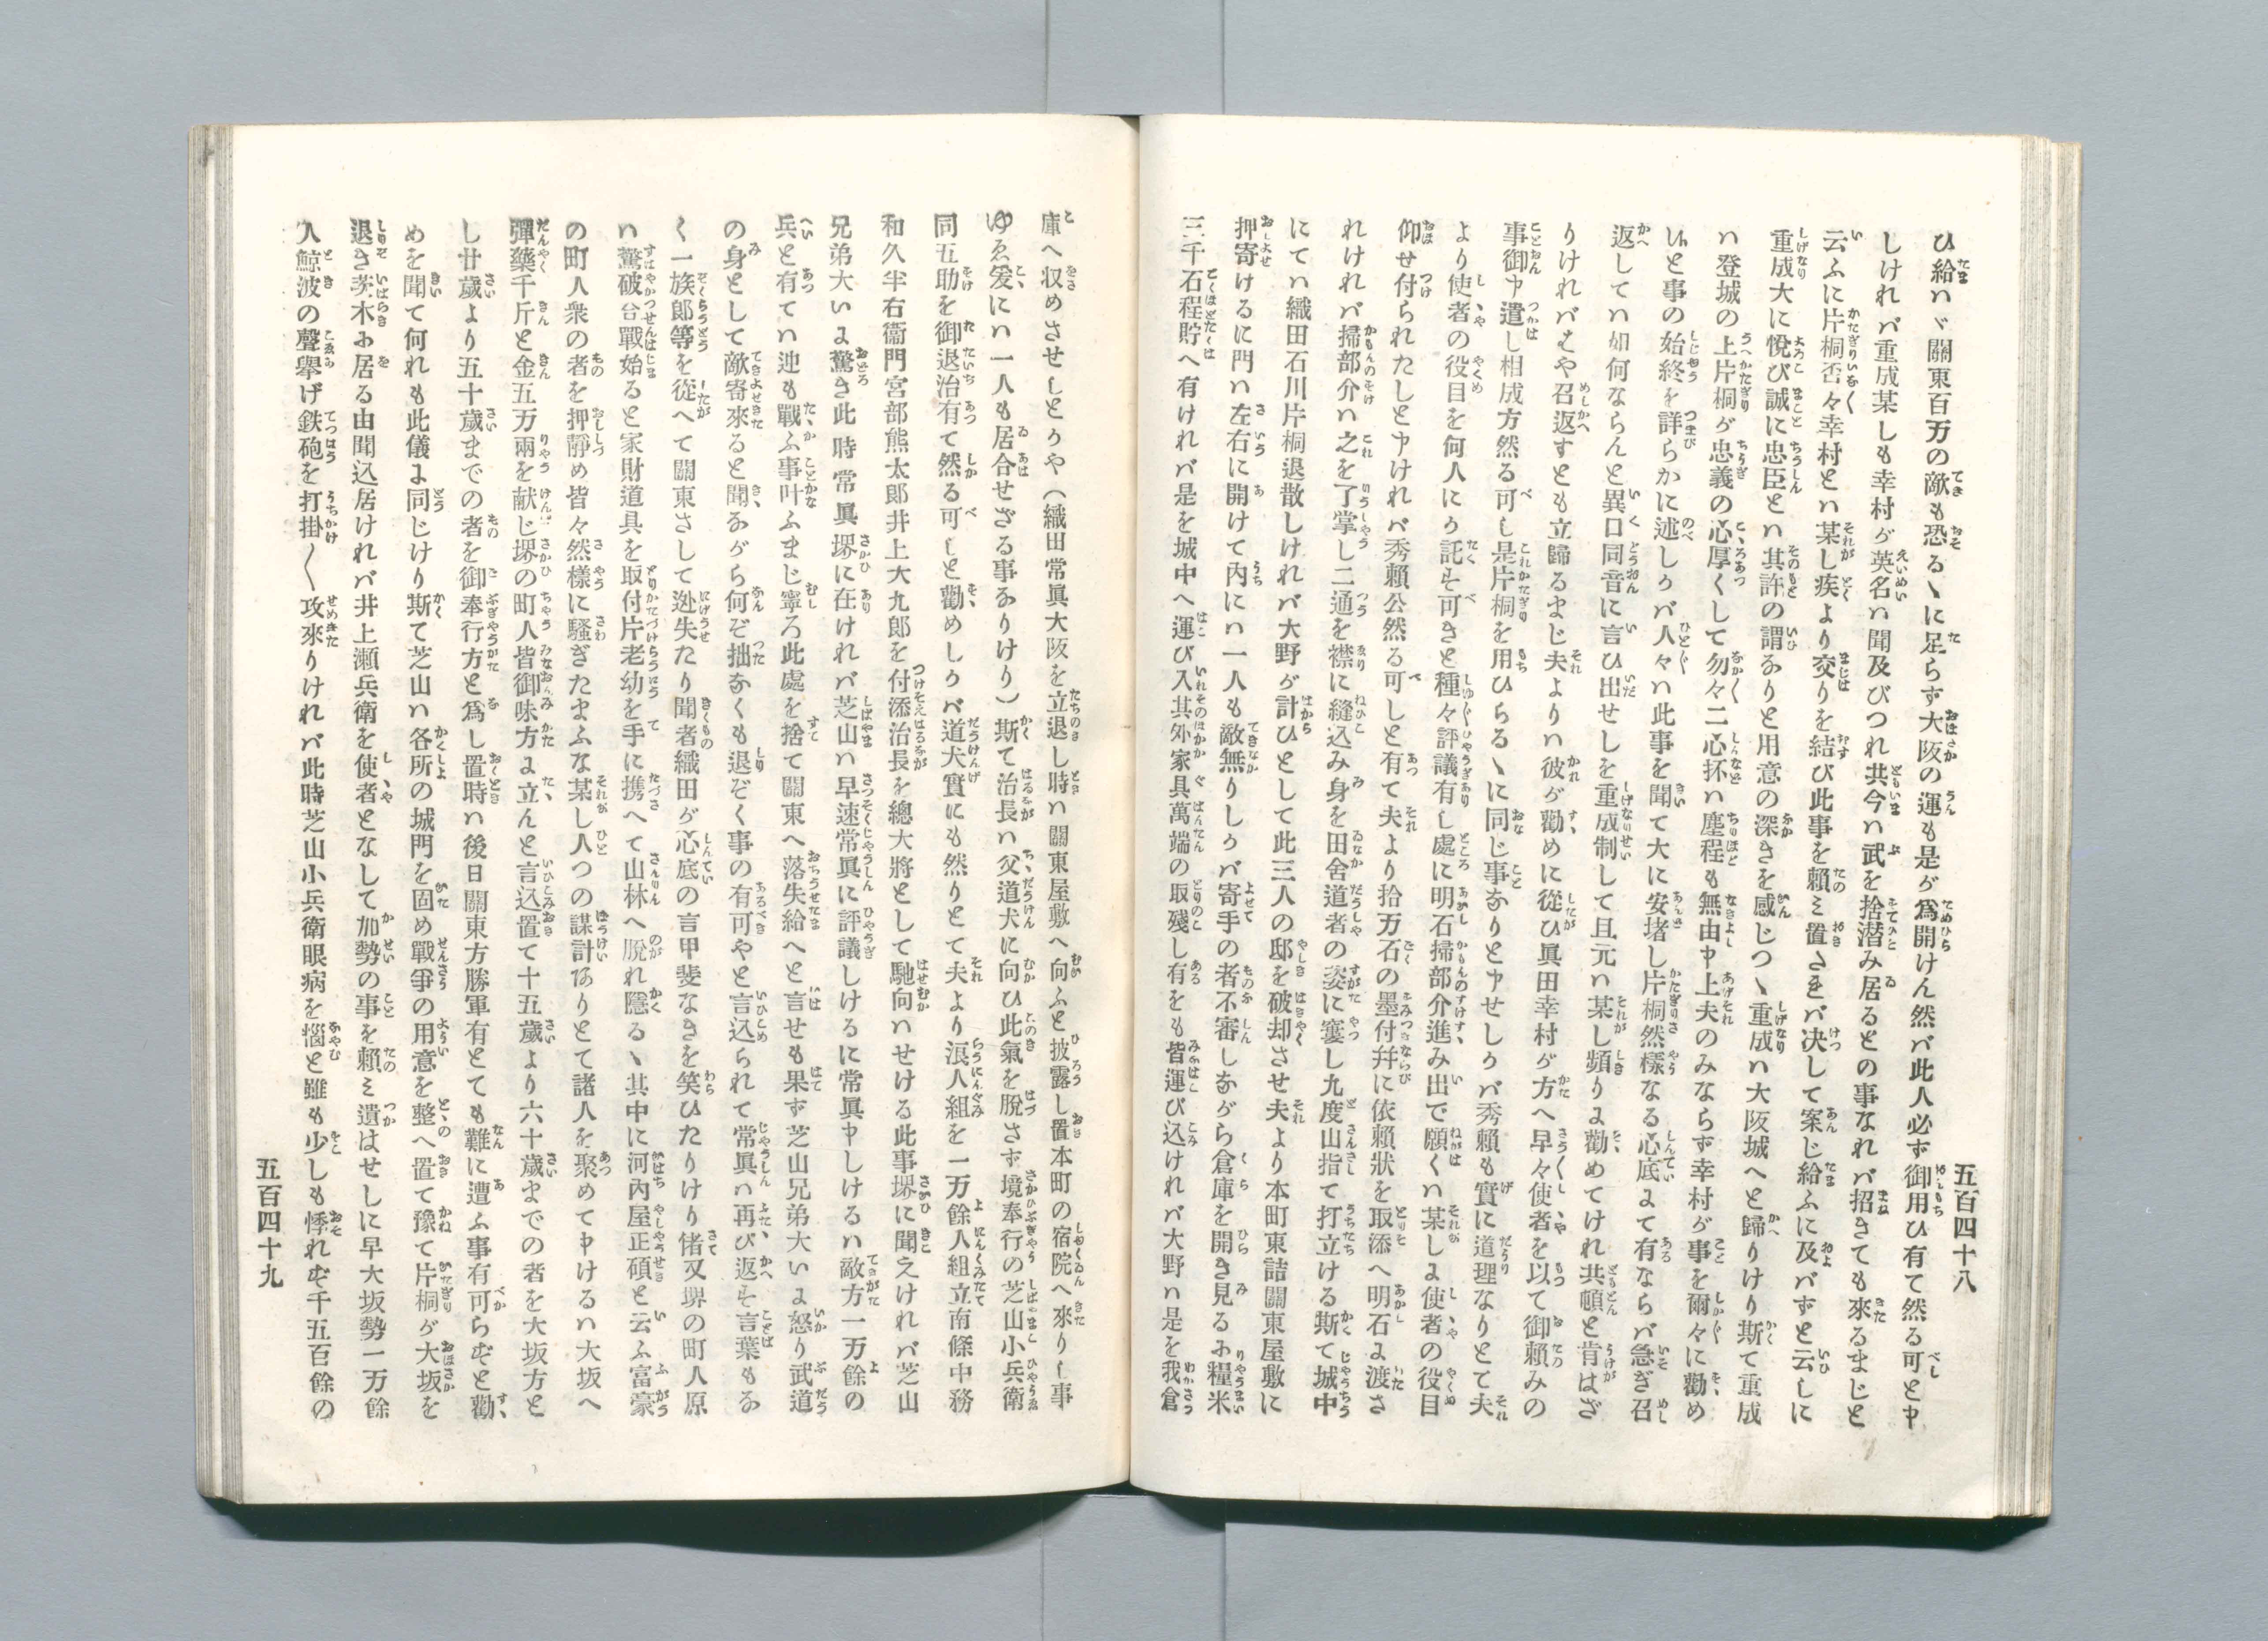 五百四十八
ひ給ハヾ關東百万の敵も恐るヽに足らず大阪の運も是が爲開けん然バ此人必ず御用ひ有て然る可しと申
しけれバ重成某しも幸村が英名ハ聞及びつれ共今ハ武を捨潜み居るとの事なれバ招きても來るまじと
云ふに片桐否々幸村とハ某し疾より交りを結び此事を頼ミ置さきバ决して案じ給ふに及バずと云しに
重成大に悅び誠に忠臣とハ其許の謂なりと用意の深きを感じつヽ重成ハ大阪城へと歸りけり斯て重成
ハ登城の上片桐が忠義の心厚くして勿々二心抔ハ塵程も無由申上夫のみならず幸村が事を爾々に勸め
しと事の始終を詳らかに述しかバ人々ハ此事を聞て大に安堵し片桐然樣なる心底にて有ならバ急ぎ召
返してハ如何ならんと異口同音に言ひ出せしを重成制して且元ハ某し頻りに勸めてけれ共頓と肯はざ
りけれバはや召返すとも立歸るまじ夫よりハ彼が勸めに從ひ眞田幸村が方へ早々使者を以て御頼みの
事御申遣し相成方然る可し是片桐を用ひらるヽに同じ事なりと申せしかバ秀頼も實に道理なりとて夫
より使者の役目を何人にか託す可きと種々評議有し處に明石掃部介進み出で願くハ某しに使者の役目
仰せ付られたしと申けれバ秀頼公然る可しと有て夫より拾万石の墨付幷に依頼狀を取添へ明石に渡さ
れけれバ掃部介ハ之を了掌し二通を襟に縫込み身を田舍道者の姿に窶し九度山指て打立ける斯て城中
にてハ織田石川片桐退散しけれバ大野が計ひとして此三人の邸を破却させ夫より本町東詰關東屋敷に
押寄けるに門ハ左右に開けて内にハ一人も敵無りしかバ寄手の者不審しながら倉庫を開き見るに糧米
三千石程貯へ有けれバ是を城中へ運び入其外家具萬端の取殘し有をも皆運び込けれバ大野ハ是を我倉
庫へ収めさせしとかや（織田常眞大阪を立退し時ハ關東屋敷へ向ふと披露し置本町の宿院へ來りし事
ゆゑ爰にハ一人も居合せざる事なりけり）斯て治長ハ父道犬に向ひ此氣を脫さず境奉行の芝山小兵衛
同五助を御退治有て然る可しと勸めしかバ道犬實にも然りとて夫より浪人組を一万餘人組立南條中務
和久半右衞門宮部熊太郎井上大九郎を付添治長を總大將として馳向ハせける此事堺に聞えけれバ芝山
兄弟大いに驚き此時常眞堺に在けれバ芝山ハ早速常眞に評議しけるに常眞申しけるハ敵方一万餘の
兵と有てハ迚も戰ふ事叶ふまじ寧ろ此處を捨て關東へ落失給へと言せも果ず芝山兄弟大いに怒り武道
の身として敵寄來ると聞ながら何ぞ拙なくも退ぞく事の有可やと言込られて常眞ハ再び返す言葉もな
く一族郎等を從へて關東さして迯失たり聞者織田が心底の言甲斐なきを笑ひたりけり偖又堺の町人原
ハ驚破合戰始ると家財道具を取付片老幼を手に携へて山林へ脫れ隱るヽ其中に河內屋正碩と云ふ富豪
の町人衆の者を押靜め皆々然樣に騷ぎたまふな某し人つの謀計ありとて諸人を聚めて申けるハ大坂へ
彈藥千斤と金五万兩を献じ堺の町人皆御味方に立んと言込置て十五歲より六十歲までの者を大坂方と
し廿歲より五十歲までの者を御奉行方と爲し置時ハ後日關東方勝軍有とても難に遭ふ事有可らずと勸
めを聞て何れも此儀に同じけり斯て芝山ハ各所の城門を固め戰爭の用意を整へ置て豫て片桐が大坂を
退き茨木に居る由聞込居けれバ井上瀬兵衛を使者となして加勢の事を賴ミ遣はせしに早大坂勢一万餘
人鯨波の聲擧げ鉄砲を打掛〱攻來りけれバ此時芝山小兵衛眼病を惱と雖も少しも悸れず千五百餘の
五百四十九